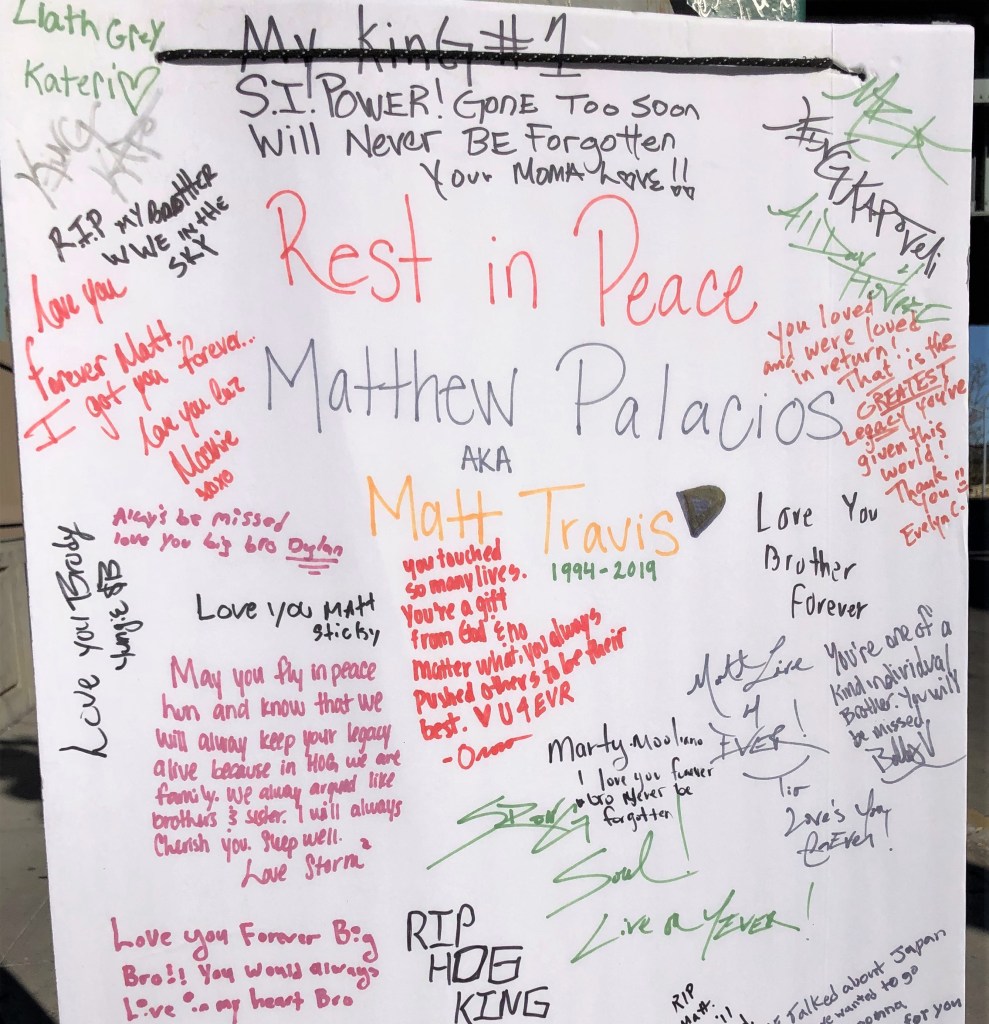 Llath Grey
Kateri♡
KING
KAPO
My KinG #1
S.I! POWER! GONE Too Soon
Will Never BE Forgotten
Your MOMA LOVE!!
R.I.P MY BROTHER
WWE IN THE
SKY
KING KAPoVeli
All Day
Rest in Peace
Matthew Palacios
AKA
Matt Travis
1994-2019
Love you
forever Matt.
I got you forever..
Love you
Mookie
xoxo
You loved
and were loved
in return!
That is the
GREATEST
Legacy you've
given this
world!
Thank
You!!
Evelyn C.
Alway's be missed
love you big bro Dylan
Love You
Brother
Forever
Love you Brody
Yungie $B
Love you MATT
Sticky
you touched
so many lives.
You're a gift
from God & no
matter what, you always
pushed others to be their
best. ♥ U 4 EVR
May you fly in peace
hun and know that we
will alway keep your legacy
alive because in HOG, we are
family. We alway argued like
brothers & sister. I will always
Cherish you. Sleep well.
Love Storm
Matt Live
4
EVER!
Tio
Love's You
You're one of a
kind individual
Brother. You will
be missed
Bobby V
Marty.
I love you
bro Never be
forgotten
Soul!
Live
Love you Forever Big
Bro!! You would always
Live in my heart Bro
RIP
HOG
KING
RIP
Matt.
Talked about Japan
wanted to go
for you